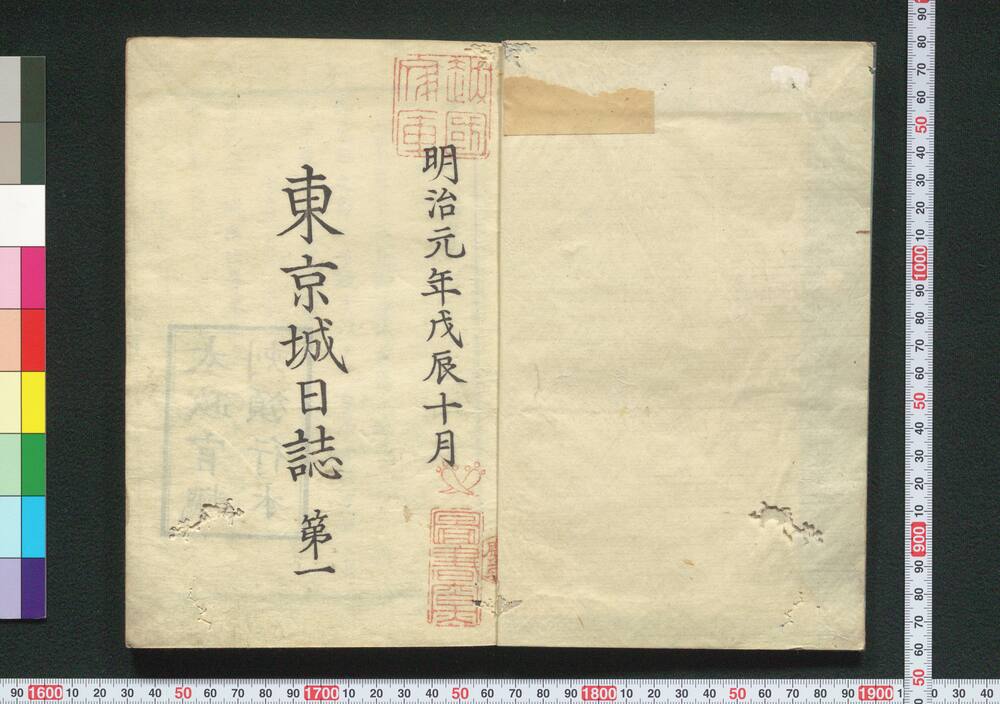 明治元年戊辰十月
東京城日誌 第一
圖書